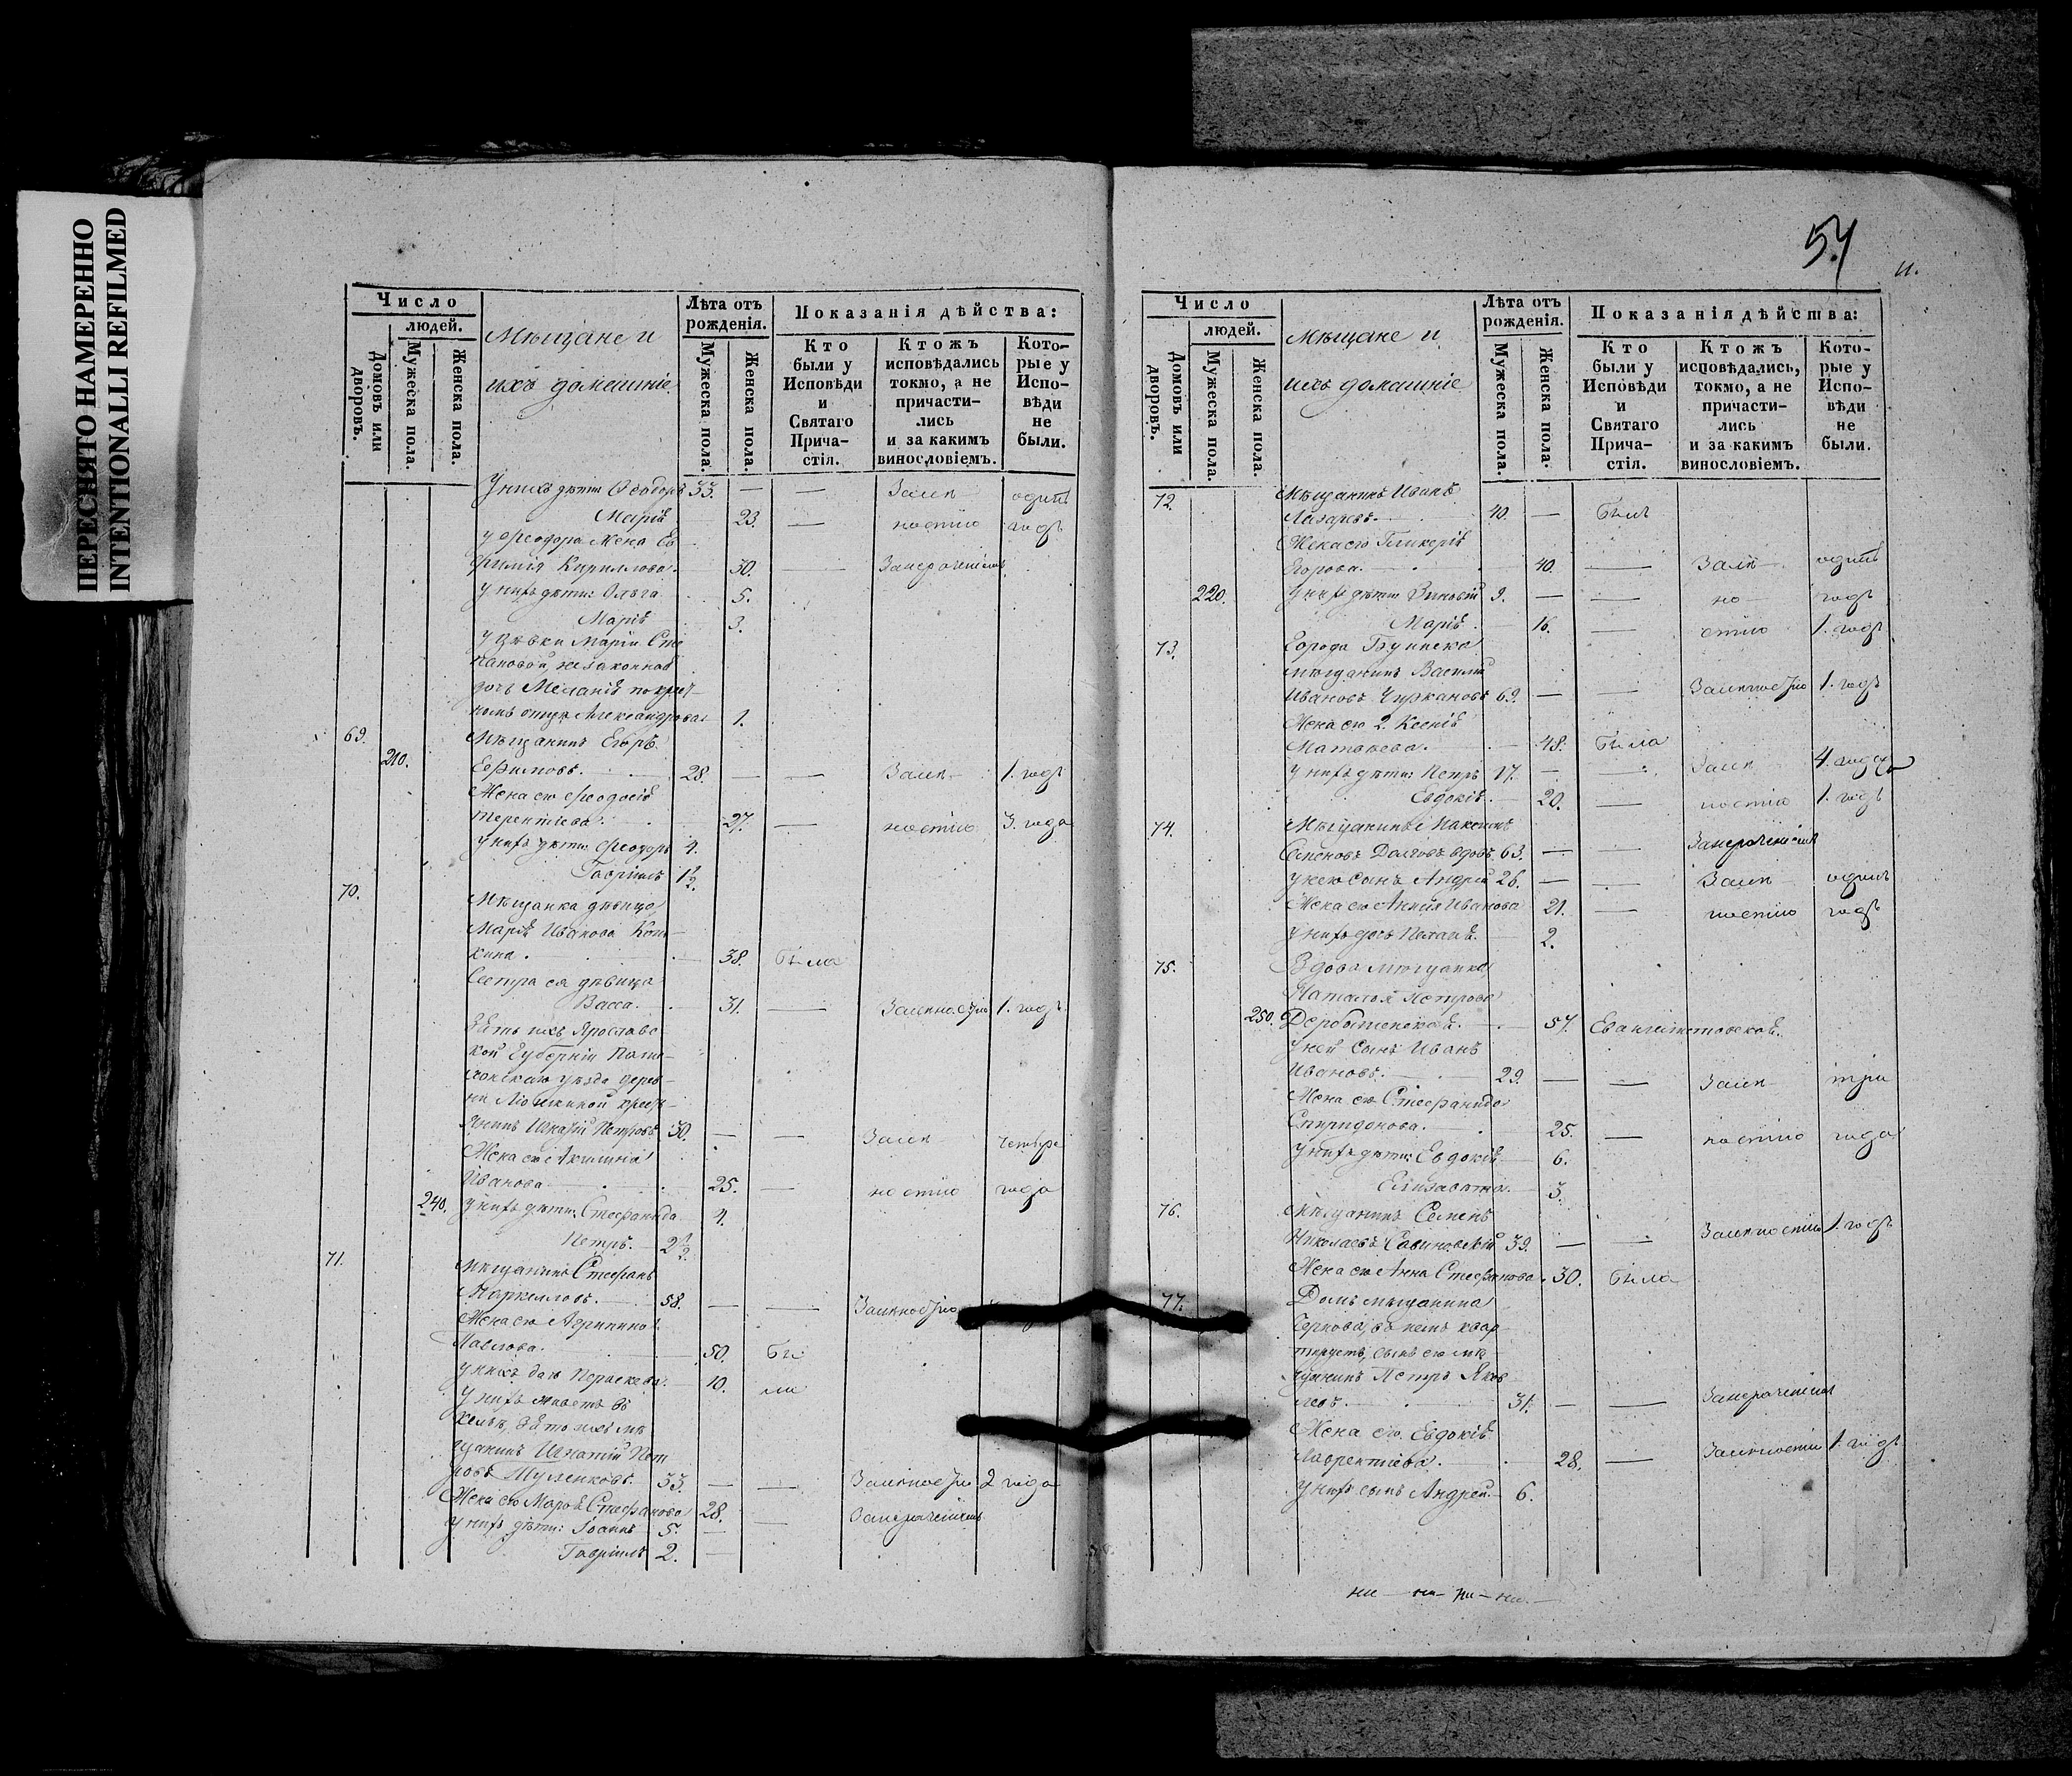 ПЕРЕСНЯТО НАМЕРЕННО
INTENTIONALLI REFILMED
Число
людей.
Домовъ или дворовъ.
Мужеска пола.
Женска пола.
Мѣщане и
ихъ домашніе
Лѣта отъ рожденія.
Мужеска пола.
Женска пола.
Показанія дѣйства:
Кто были у Исповѣди и Святаго Прича-стія.
Ктожъ исповѣдались токмо, а не причасти-лись и за какимъ винословіемъ.
Кото-рые у Испо-вѣди не были.
У нихъ дѣти Ѳеодоръ 33. — — Залѣн один
Марія 23. — ностію годъ
у Ѳеодора Жена Ев
фимія Кириллова. 30. —
У нихъ дѣти: Ольга 5.
Марія 3.
у дѣвки Маріи Сте
пановой, незаконная
дочь Меланія по крест
номъ отцѣ Александрова 1.
69. Мѣщанинъ Егоръ
210. Ефимовъ. 28. — — Залѣн 1. годъ
Жена его Ѳеодосія
Терентіева. 27. — ностію 3. года
У нихъ дѣти: Ѳеодоръ 4.
Гавріилъ 1½.
70. Мѣщанка дѣвица
Марія Иванова Кош
кина. 38. Была
Сестра ея дѣвица
Васса. 31. — Залѣностію 1. годъ
Зять ихъ Ярослав
кой Губерніи
уѣзда дерев
ни крест
янинъ Петровъ 30. — — Залѣн четыре
Жена его Акилина
Иванова 25. — ностію года
240. У нихъ дѣти: Стефанида 4.
Петръ. 2½.
71. Мѣщанинъ Стефанъ
Маркелловъ. 58. — — Залѣностію
Жена его Агрипина
Павлова. 50. Бы
У нихъ дочь Параскева. 10. ли
У нихъ живетъ въ
кельѣ, зять ихъ мѣ
щанинъ Игнатій Пет
ровъ 33. — — Залѣностію 2 года
Жена его Марѳа Стефанова 28. —
У нихъ дѣти: Іоаннъ 5. —
Гавріилъ 2. —
54
11.
Число
людей.
Домовъ или дворовъ.
Мужеска пола.
Женска пола.
Мѣщане и
ихъ домашніе
Лѣта отъ рожденія.
Мужеска пола.
Женска пола.
Показанія дѣйства:
Кто были у Исповѣди и Святаго Прича-стія.
Ктожъ исповѣдались, токмо, а не причасти-лись и за какимъ винословіемъ.
Кото-рые у Испо-вѣди не были.
72. Мѣщанинъ Иванъ
Лазаревъ. 40. — Былъ
Жена его Гликерія
Егорова. 40. — Залѣ один
220. У нихъ дѣти Зиновій 9. — — но годъ
Марія. 16. — стію 1. годъ
73. Города Буинска
мѣщанинъ Василій
Ивановъ Чуркановъ 69. — — Залѣностію 1. годъ
Жена его 2. Ксенія
Матвѣева. 48. Была
У нихъ дѣти: Петръ 17. — Залѣн 4. года
Евдокія. 20. — ностію 1. годъ
74. Мѣщанинъ Максимъ
Семеновъ Долговъ вдовъ 63. — —
у него сынъ Андрей 26. — — Залѣн одинъ
Жена его Иванова 21. — ностію годъ
У нихъ дочь Пелагія. 2.
75. Вдова мѣщанка
Наталья Петрова
250. 57.
У ней сынъ Иванъ
Ивановъ. 29. — — Залѣн три
Жена его Стефанида
Спиридонова. 25. — ностію года
У нихъ дѣти: Евдокія 6.
Елизавета. 3.
76. Мѣщанинъ Семенъ
Николаевъ Савиновскій 39. — — Залѣностію 1. годъ
Жена его Анна Стефанова. 30. Была
77. Домъ мѣщанина
Чернова, въ немъ квар
тируетъ, сынъ его мѣ
щанинъ Петръ Яков
левъ. 31. — —
Жена его Евдокія
Лаврентіева. 28. — Залѣностію 1. годъ
У нихъ сынъ Андрей. 6.